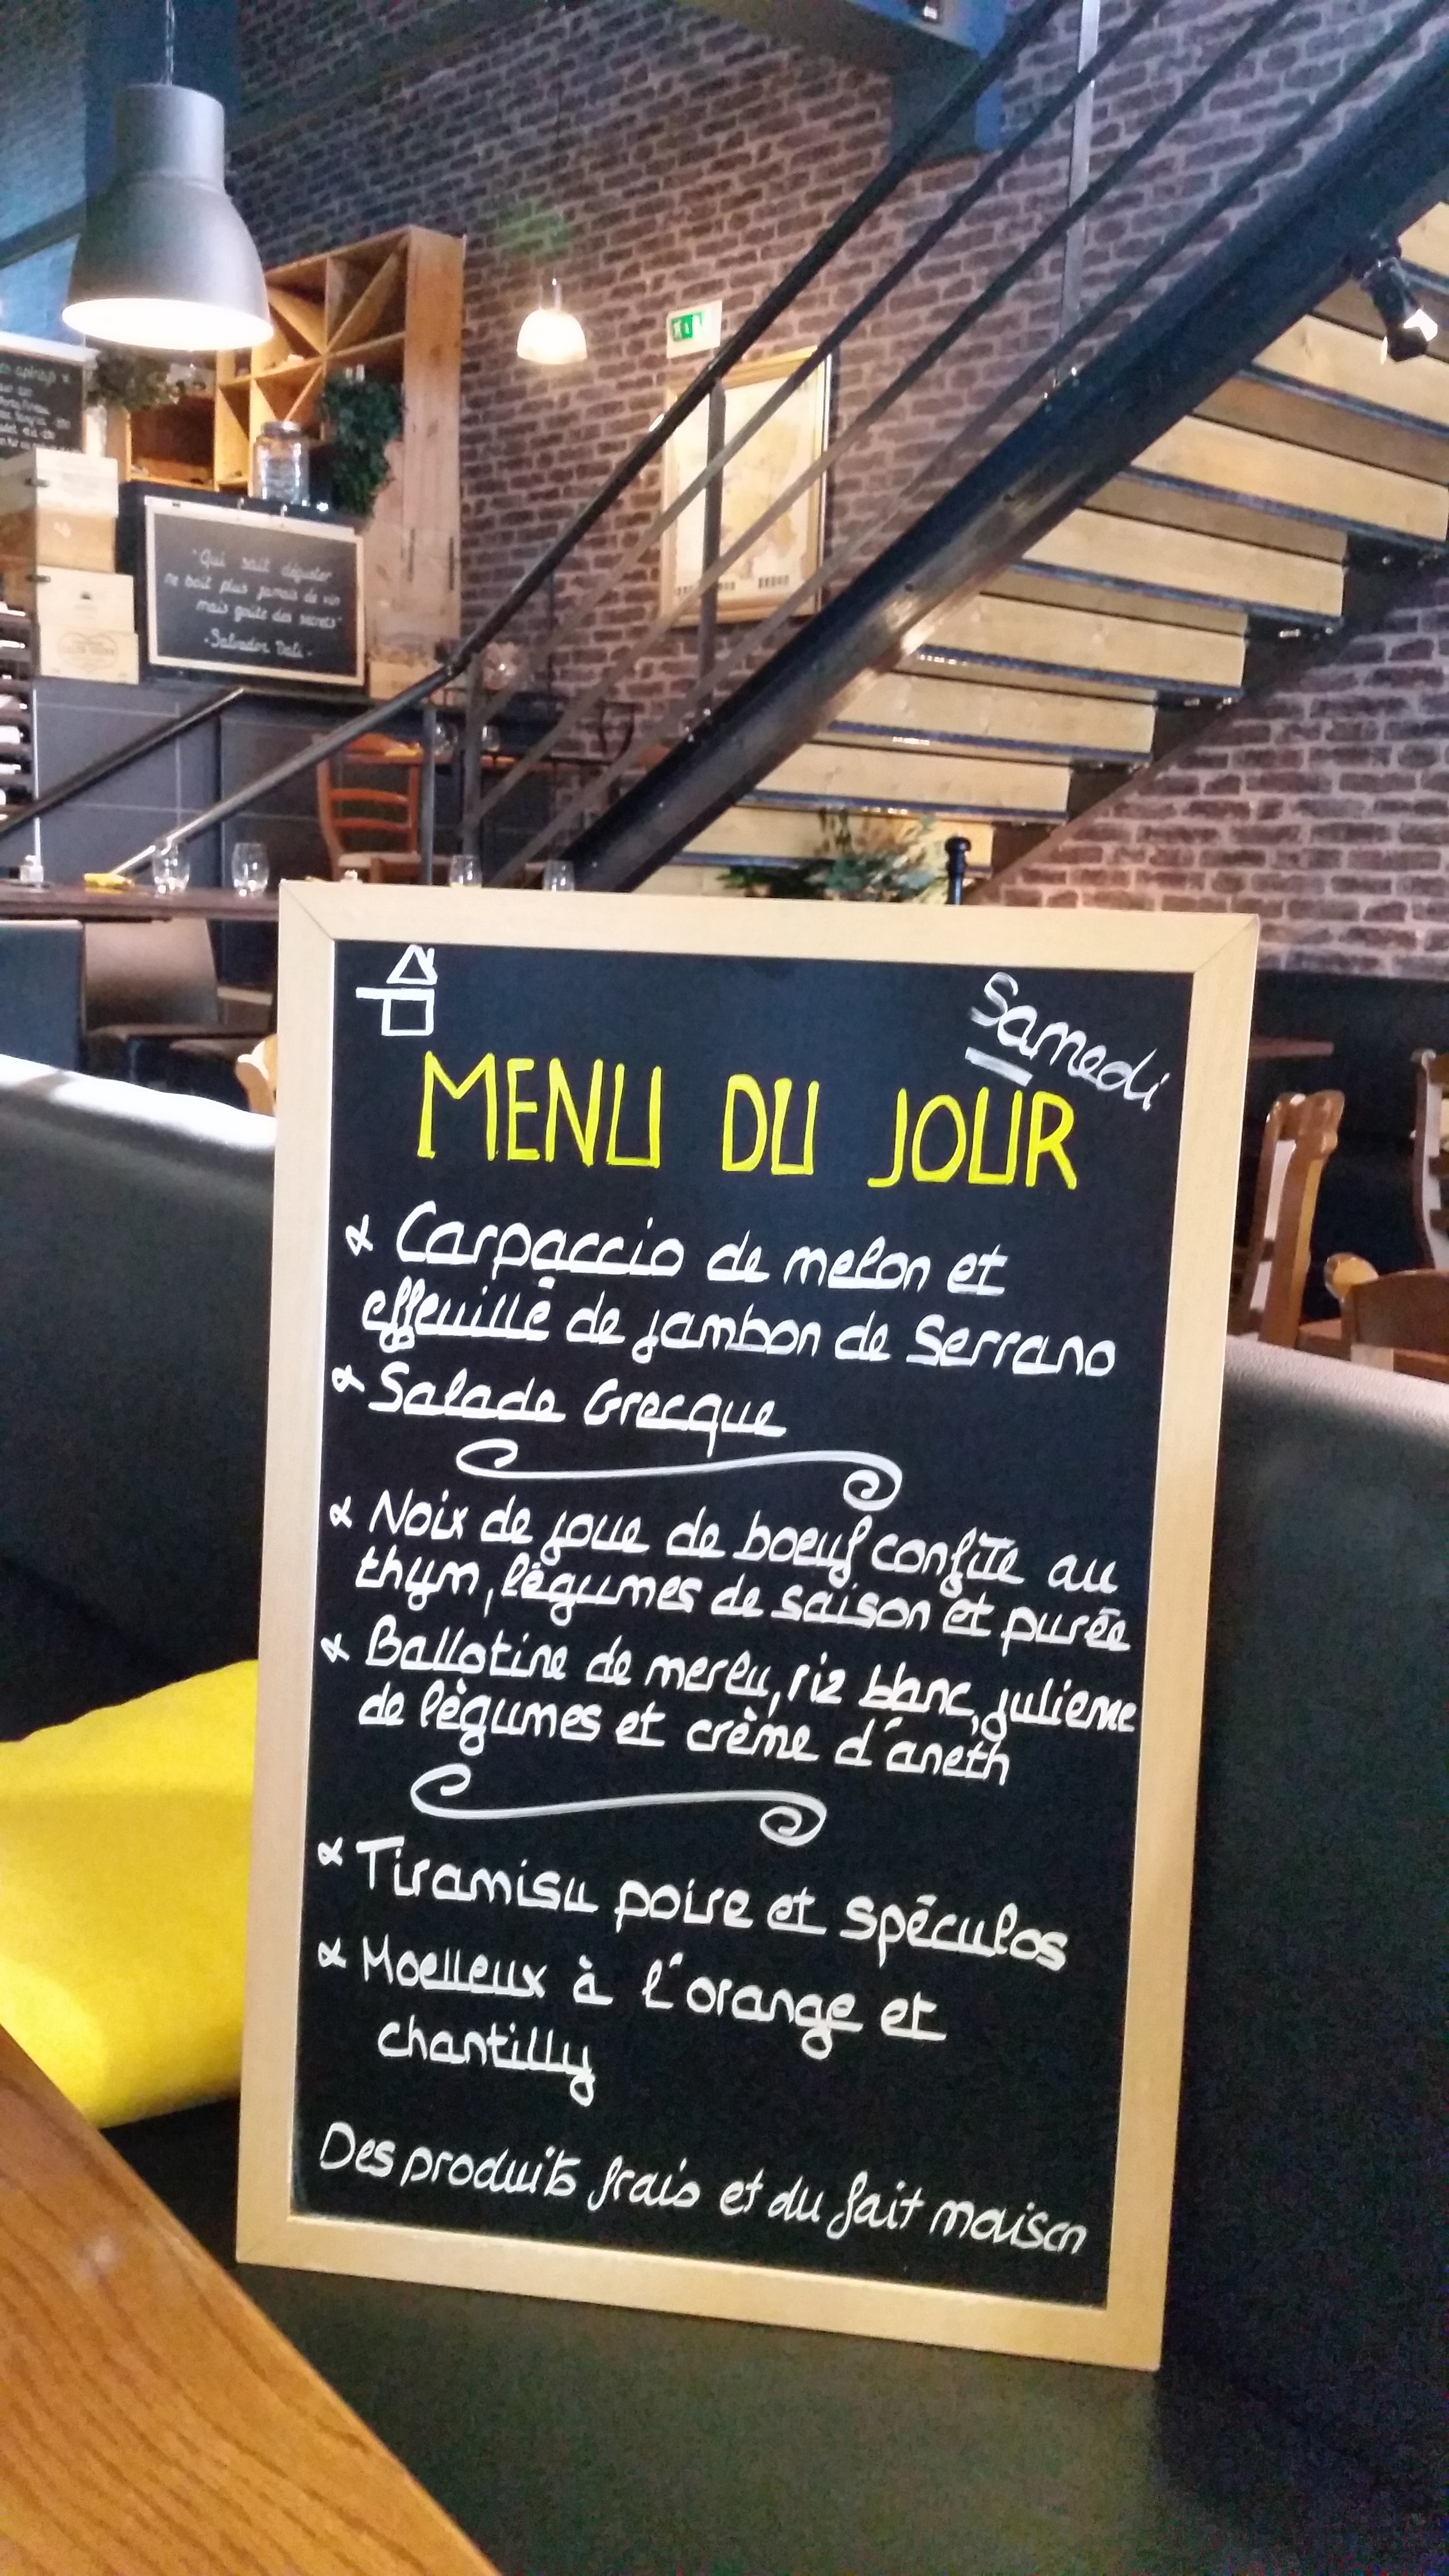 "Qui sait déguster
ne boit plus jamais de vin
mais goûte des secrets"
- Salvador Dali -
Samedi
MENU DU JOUR
Carpaccio de melon et
effeuillé de jambon de Serrano
Salade Grecque
Noix de joue de boeuf confite au
thym, légumes de saison et purée
Ballotine de merlu, riz blanc, julienne
de légumes et crème d'aneth
Tiramisu poire et spéculos
Moelleux à l'orange et
chantilly
Des produits frais et du fait maison